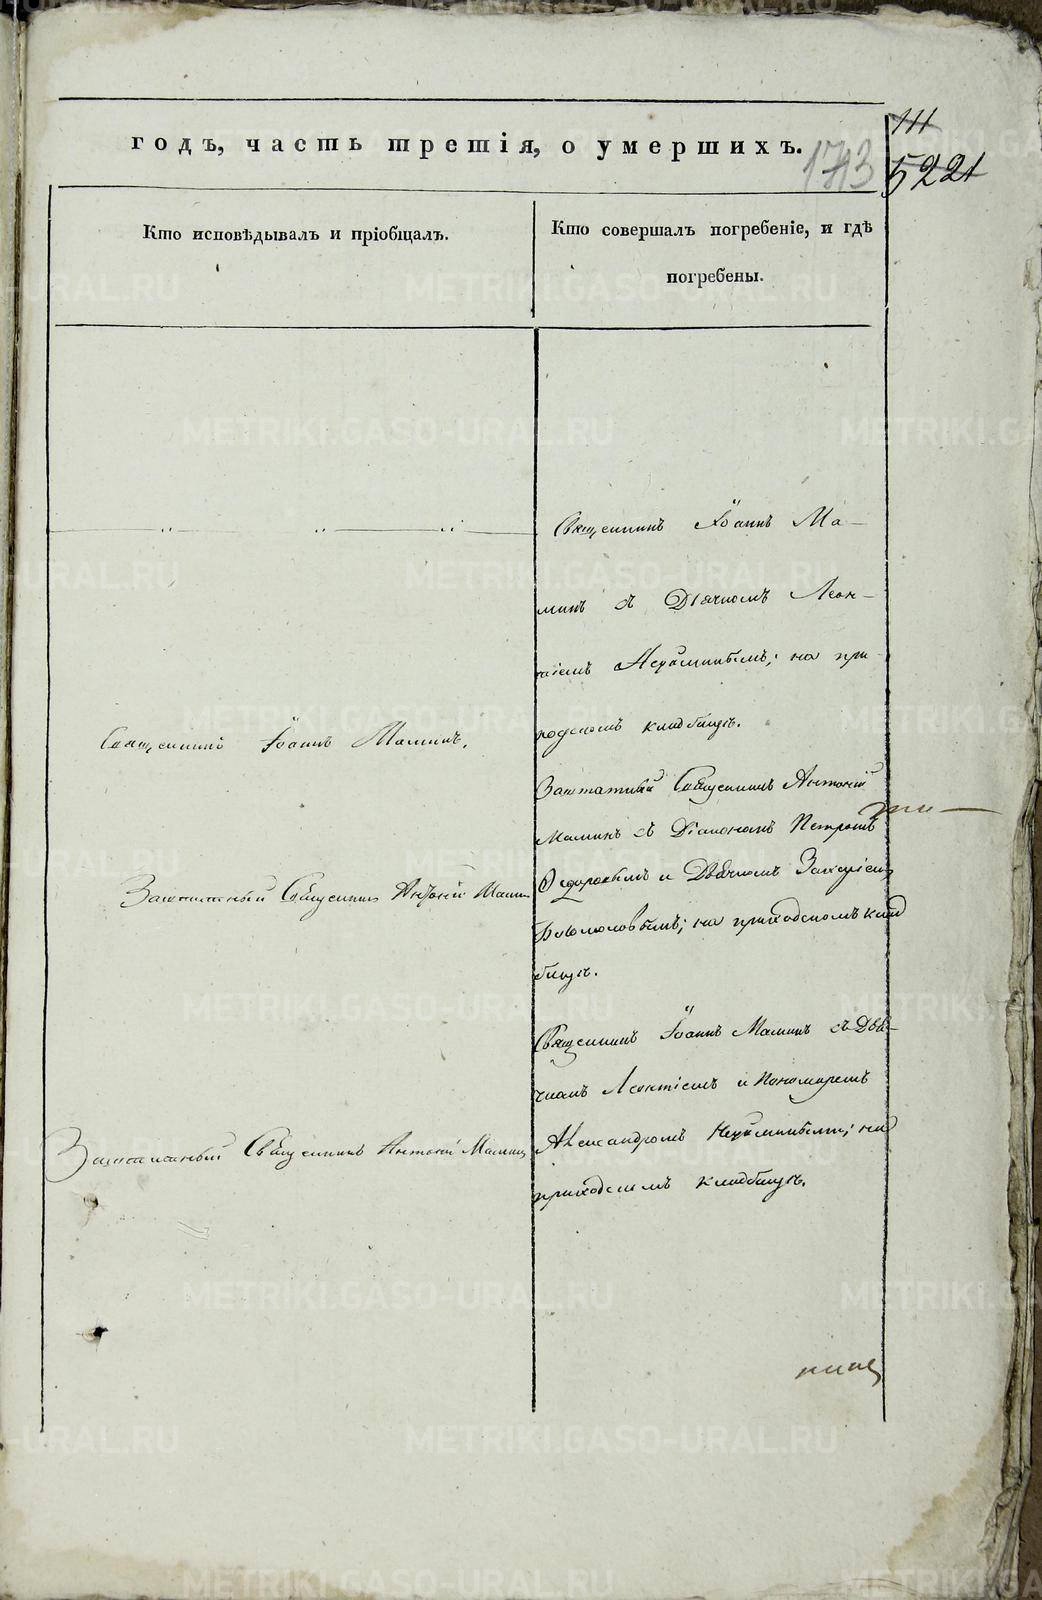 111
годъ, часть третія, о умершихъ.
173
5221
Кто исповѣдывалъ и пріобщалъ.
Кто совершалъ погребеніе, и гдѣ
погребены.
Священникъ Іоаннъ Ма-
минъ съ Дьячкомъ Леон-
тіемъ на при
ходскомъ кладбищѣ.
Священникъ Іоаннъ Маминъ.
Заштатный Священникъ Антоній
Маминъ съ Діакономъ Петромъ
Ѳедоровымъ и Дьячкомъ
на приходскомъ клад
бищѣ.
Заштатный Священникъ Антоній Маминъ
Священникъ Іоаннъ Маминъ съ Дья-
чкомъ Леонтіемъ и Пономаремъ
Александромъ на
приходскомъ кладбищѣ.
Заштатный Священникъ Антоній Маминъ
METRIKI.GASO-URAL.RU